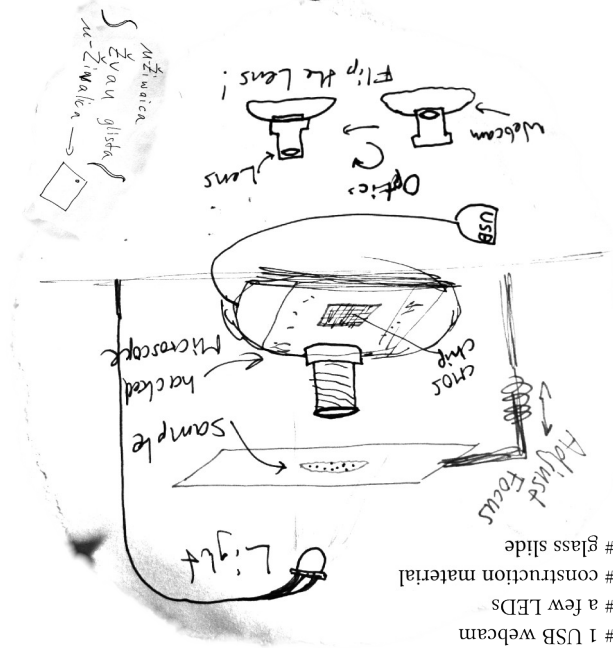 # 1 USB webcam
# a few LEDs
# construction material
# glass slide
Light
Adjust
Focus
Sample
hacked
Microscope
CMOS
chip
USB
Optics
Webcam
Lens
Flip the Lens!
u-Živalica
glista